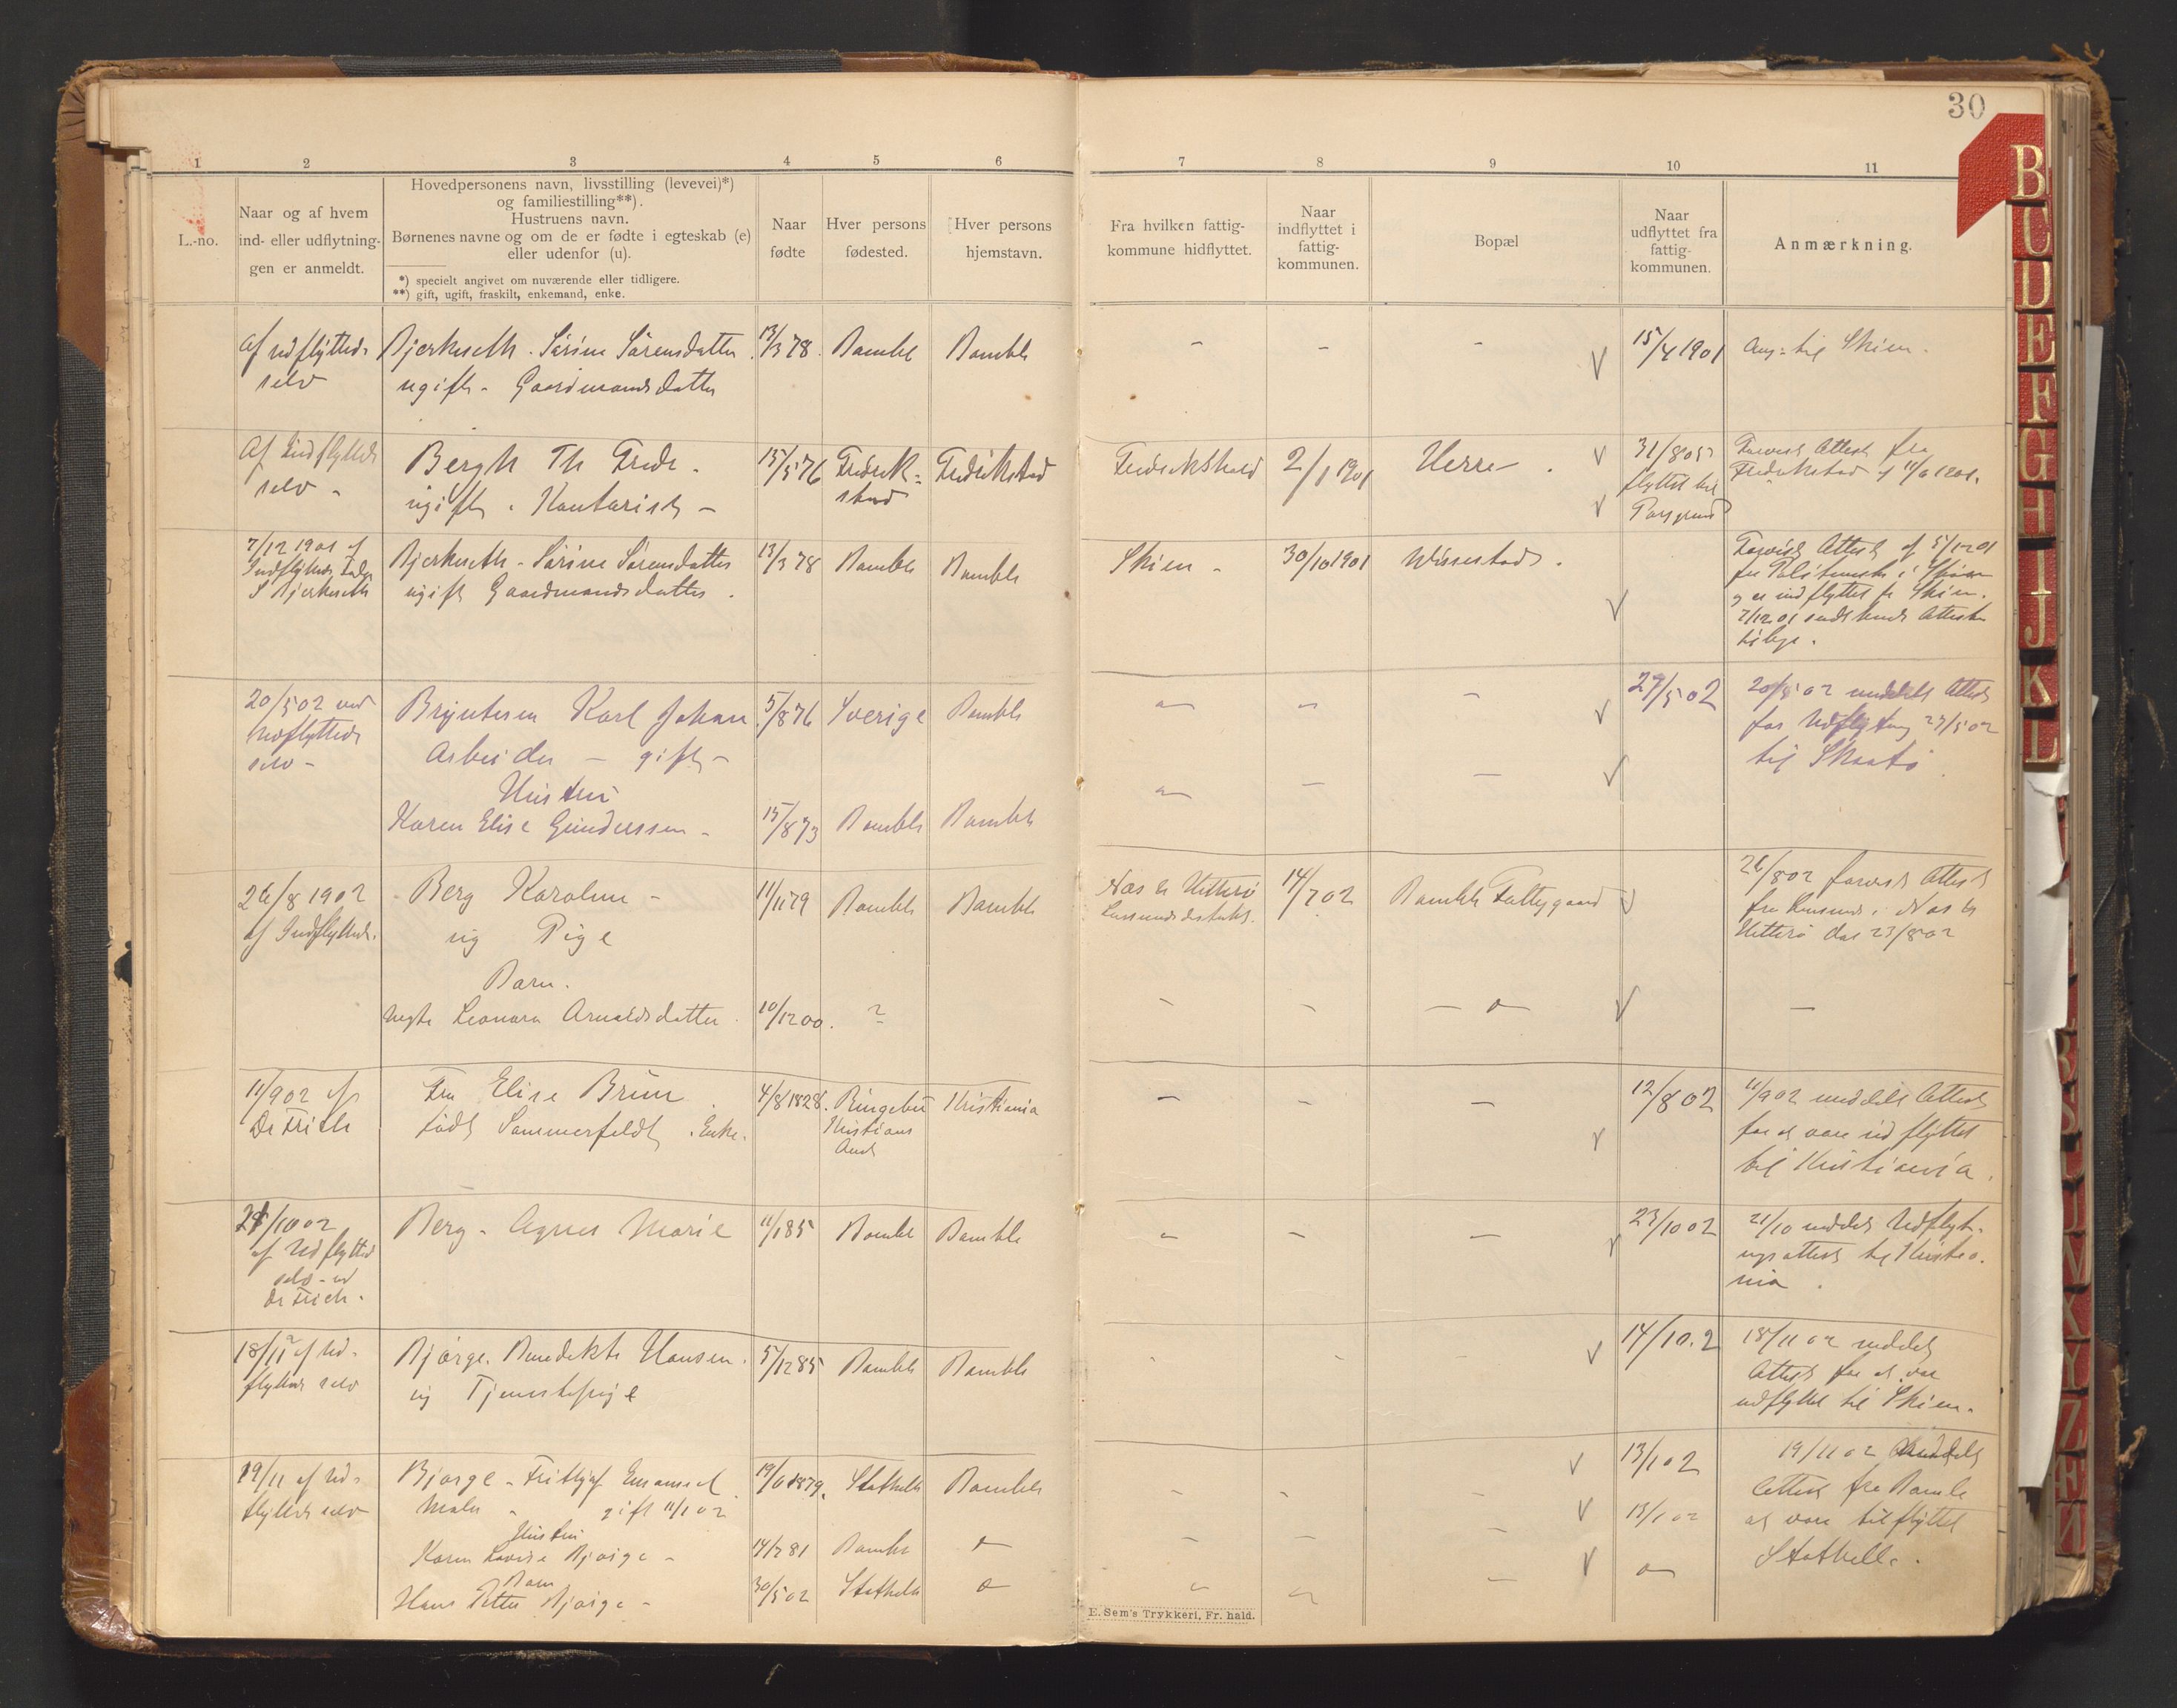 30
1 2 3 4 5 6 7 8 9 10 11
L.-no.
Naar og af hvem
ind- eller udflytnin-
gen er anmeldt.
Hovedpersonens navn, livsstilling (levevei)*)
og familiestilling**).
Hustruens navn.
Børnenes navne og om de er fødte i egteskab (e)
eller udenfor (u).
*) specielt angivet om nuværende eller tidligere.
**) gift, ugift, fraskilt, enkemand, enke.
Naar
fødte
Hver persons
fødested.
Hver persons
hjemstavn.
Fra hvilken fattig-
kommune hidflyttet.
Naar
indflyttet i
fattig-
kommunen.
Bopæl
Naar
udflyttet fra
fattig-
kommunen.
Anmærkning.
af udflyttede Bjerkseth - Sørine Sørensdatter 13/3 78. Bamble Bamble - - - V 15/4 1901 til Skien -
selv ugift - Gaardmandsdatter
Af Indflyttede Bergh Th Fredr - 15/5 76 Fredrik- Fredrikstad Fredrikshald 2/1 1901 Herre - V 31/8 05 Forevist Attest fra
selv - ugift - Kontorist - stad V flyttet til Fredrikstad
Porsgrund
7/12 1901 af Bjerkseth - Sørine Sørensdatter 13/3 78 Bamble Bamble Skien - 30/10 1901 Wissestad . Forevist Attest af 5/12 01
Indflyttede ugift Gaardmandsdatter . V fra i Skien
S Bjerkseth og er indflyttet fr Skien.
7/12 01 sendt hende Attesten
tilbage.
20/5 02 ved Bryntesen Karl Johan 5/8 76 Sverige Bamble - V 27/5 02 20/5 02 meddelt Attest
Udflyttede Arbeider - gift - for Udflytning 27/5 02
selv - Hustru V til Skaatø
Karen Elise Gunderssen - 15/8 73 Bamble Bamble
26/8 1902 Berg Karoline - 11/11 79 Bamble Bamble Næs & Hitterø 14/7 02 Bamble Fattiggaard V 26/8 02 forevist Attest
af Indflyttede. ug Pige fra i Næs &
Hitterø dat 23/8 02
Barn.
uegte Leonora Arnoldsdatter . 10/12 00. ? - - - V -
11/9 02 af Fru Elise Bruun 4/8 1828. Ringebu Kristiania - - 12/8 02 11/9 02 meddelt Attest
født Sommerfeldt . Enke. Kristians V for at være udflyttet
Amt til Kristiania.
21/10 02 Berg - Agnes Marie 11/1 85 Bamble Bamble - - - V 23/10 02 21/10 meddelt Udflyt-
af Udflyttede ngsattest til Kristia-
selv - nia .
18/11 af Ud- Bjørge. Benedikte Hansen. 5/12 85 Bamble Bamble V 14/10.2 18/11 02 meddelt
flyttede selv ug Tjenestepige Attest for at være
udflyttet til Skien.
19/11 af Ud- Bjørge - Frithjof Emanuel 1879. Stathelle Bamble V 13/1 02 19/11 02 meddelt
flyttede selv Maler - gift 11/1 02 Attest fra Bamble
Hustru V 13/1 02 at være tilflyttet
Karen Lovise Bjørge - 14/2 81 Bamble Stathelle.
Barn V
Hans Petter Bjørge - 30/5 02 Stathelle
E. Sem's Trykkeri, Fr. hald.
B
C
D
E
F
G
H
I
J
K
L
X
Y
Z
Æ